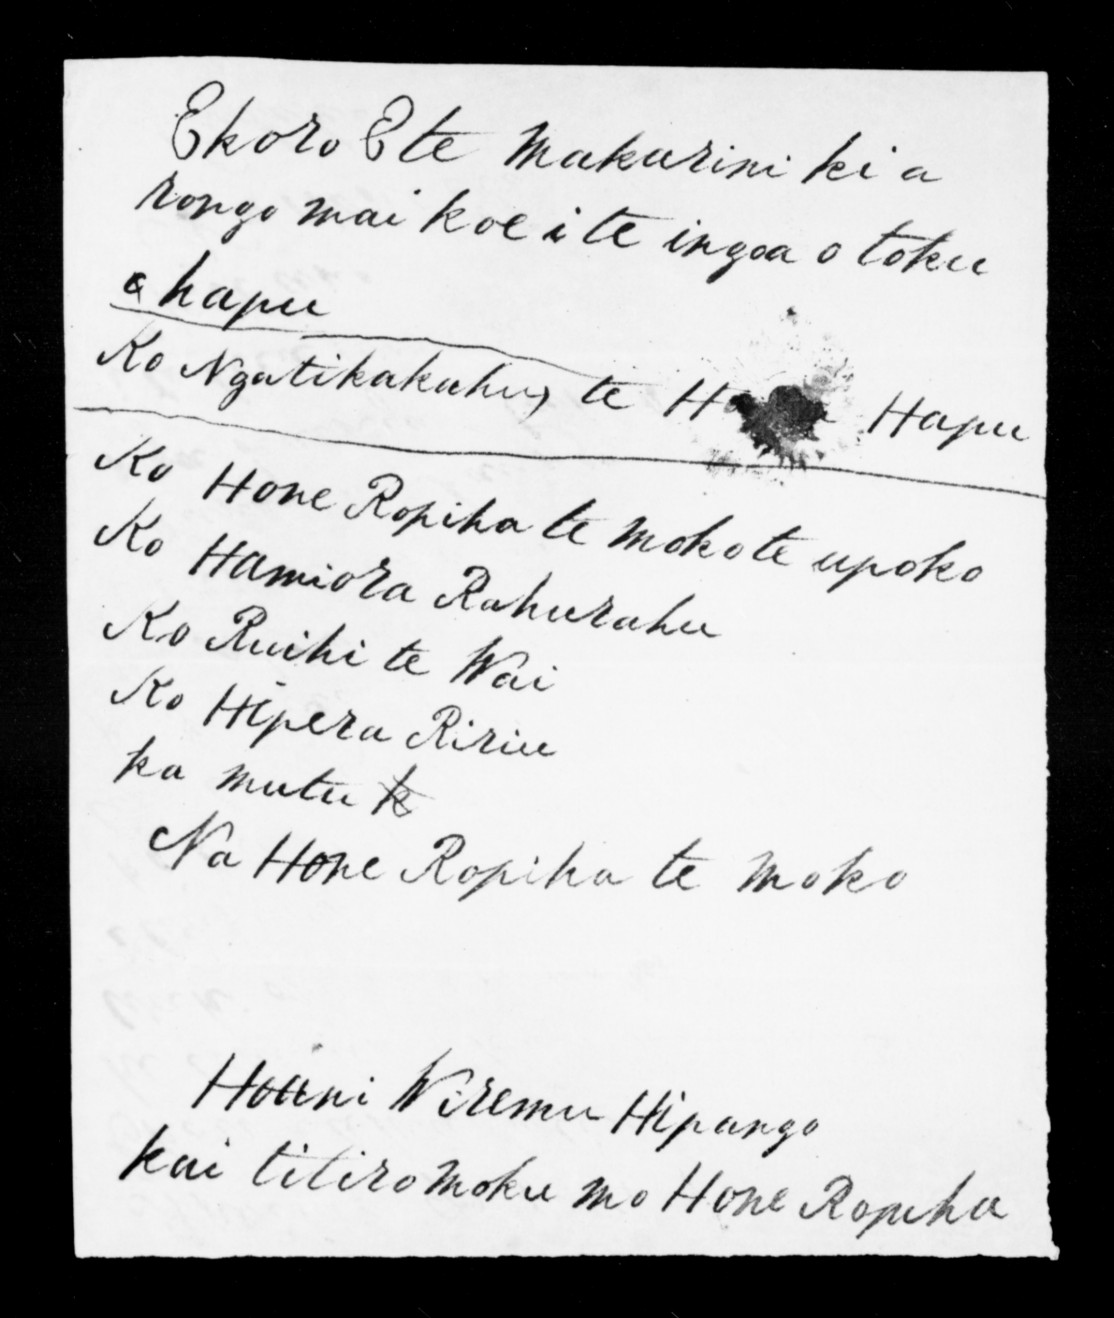 Ekoro Ete Makarini ki a
rongo mai koe i te ingoa o toku
hapu
Ko Ngatikakahu, te Hapu
Ko Hone Ropiha te moko te upoko
Ko Hamiora Rahurahu
Ko Ruihi te Wai
Ko Hipera Ririu
ka mutu
Na Hone Ropiha te moko
Hoani Wiremu Hipango
kai titiro moku mo Hone Ropiha